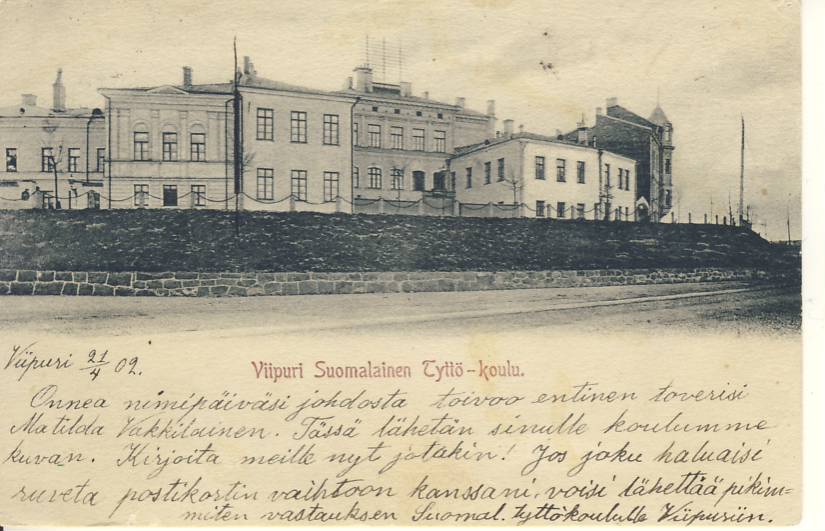 Viipuri Suomalainen Tyttö-koulu.
Viipuri 21/4 02.
Onnea nimipäiväsi johdosta toivoo entinen toverisi
Matilda Vakkilainen. Tässä lähetän sinulle koulumme
kuvan. Kirjoita meille nyt jotakin! Jos joku haluaisi
ruveta postikortin vaihtoon kanssani, voisi lähettää pikim=
miten vastauksen Suomal. tyttökoululle Viipuriin.